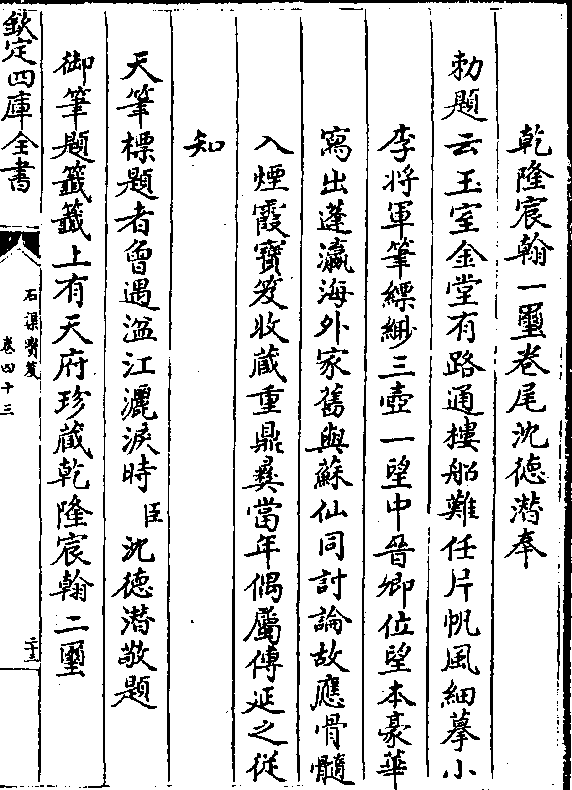 乾隆宸翰一璽卷尾沈徳潜奉
勅題云玉室金堂有路通樓船難任片帆風細摹小
李將軍筆縹緲三壺一望中晉卿位望本豪華
寫出蓬瀛海外家舊與蘇仙同討論故應骨髓
入煙霞寶笈收蔵重鼎彝當年偶屬傅延之從
知
天筆標題者曾遇湓江灑淚時臣沈徳潜敬題
御筆題籤籤上有天府珍蔵乾隆宸翰二璽
欽定四庫全書
石渠寳笈
卷四十三
二十三